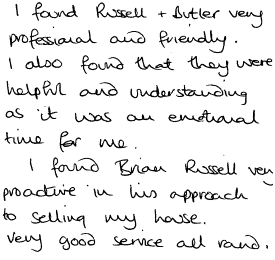 I found Russell + Butler very
professional and friendly.
I also found that they were
helpful and understanding
as it was an emotional
time for me.
I found Brian Russell very
proactive in his approach
to selling my house.
Very good service all round.